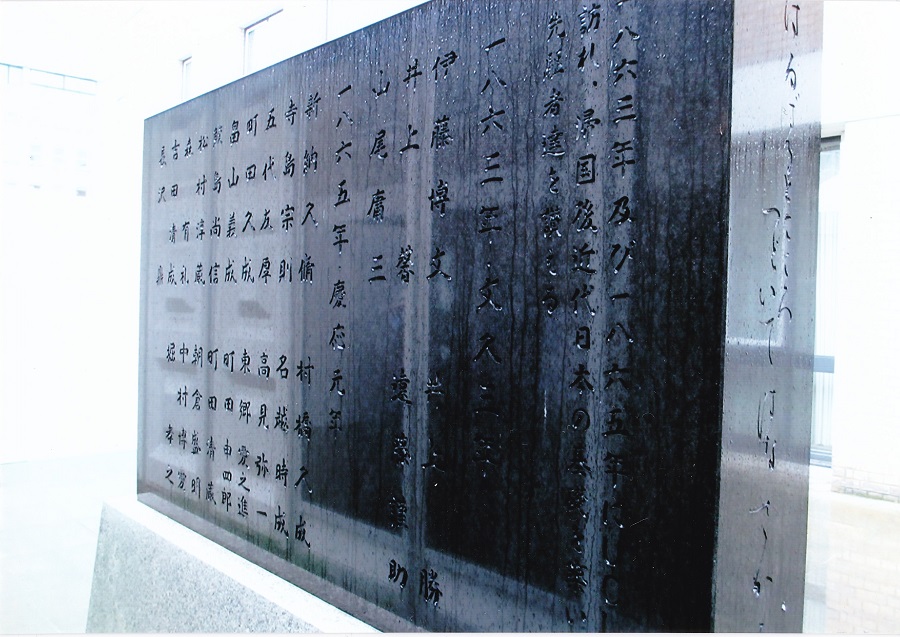 はるばるとこころつどいてはなさかる
一八六三年及び一八六五年にUCL
訪れ、帰国後近代日本の基礎を築い
先駆者達を讃える
一八六三年・文久三年
伊藤博文 井上勝
井上馨 遠藤謹助
山尾庸三
一八六五年・慶応元年
新納久脩 村橋久成
寺島宗則 名越時成
五代友厚 高見弥一
町田久成 東郷愛之進
畠山義成 町田申四郎
鮫島尚信 町田清蔵
松村淳蔵 朝倉盛明
森有礼 中村博愛
吉田清成 堀孝之
長沢鼎